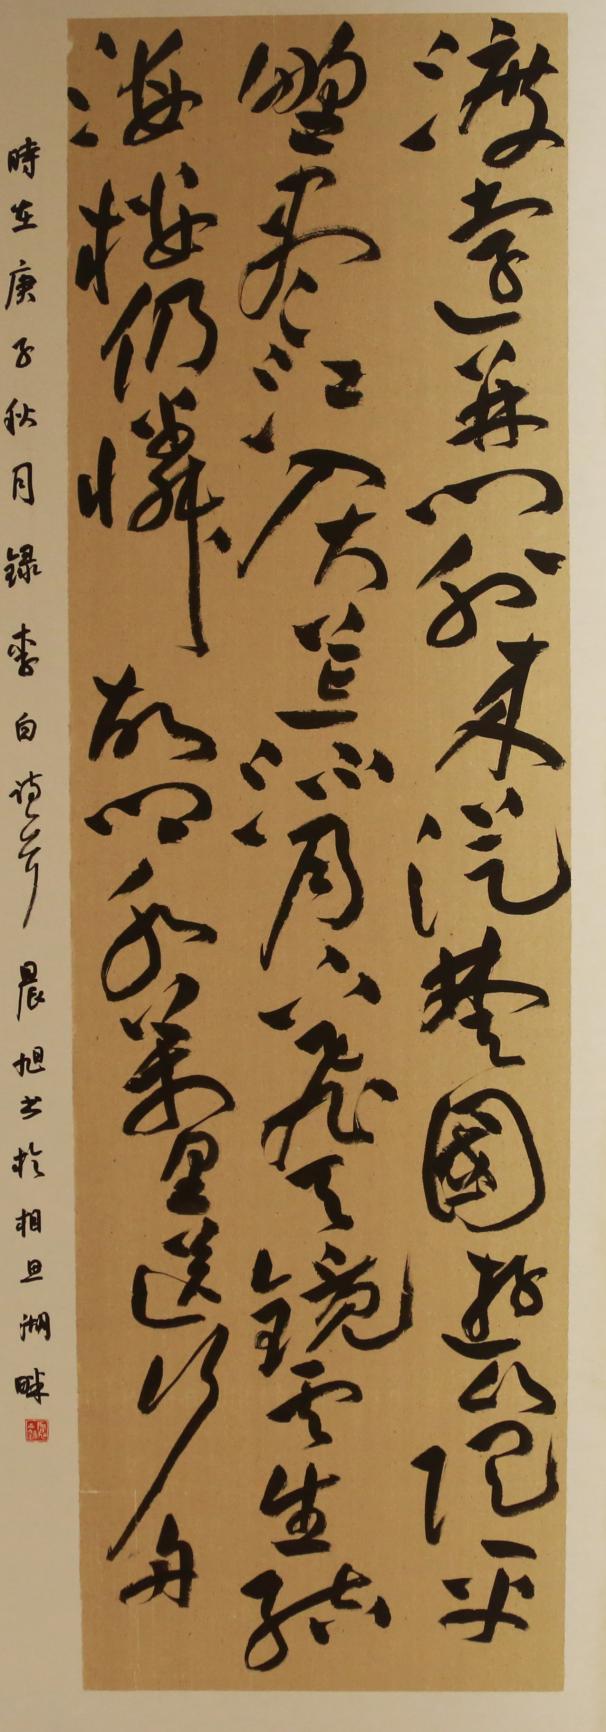 渡遠荊門外來從楚國遊山隨平
野盡江入大荒流月下飛天鏡雲生結
海樓仍憐故鄉水萬里送行舟
時在庚子秋月錄李白詩一首晨旭書於相思湖畔